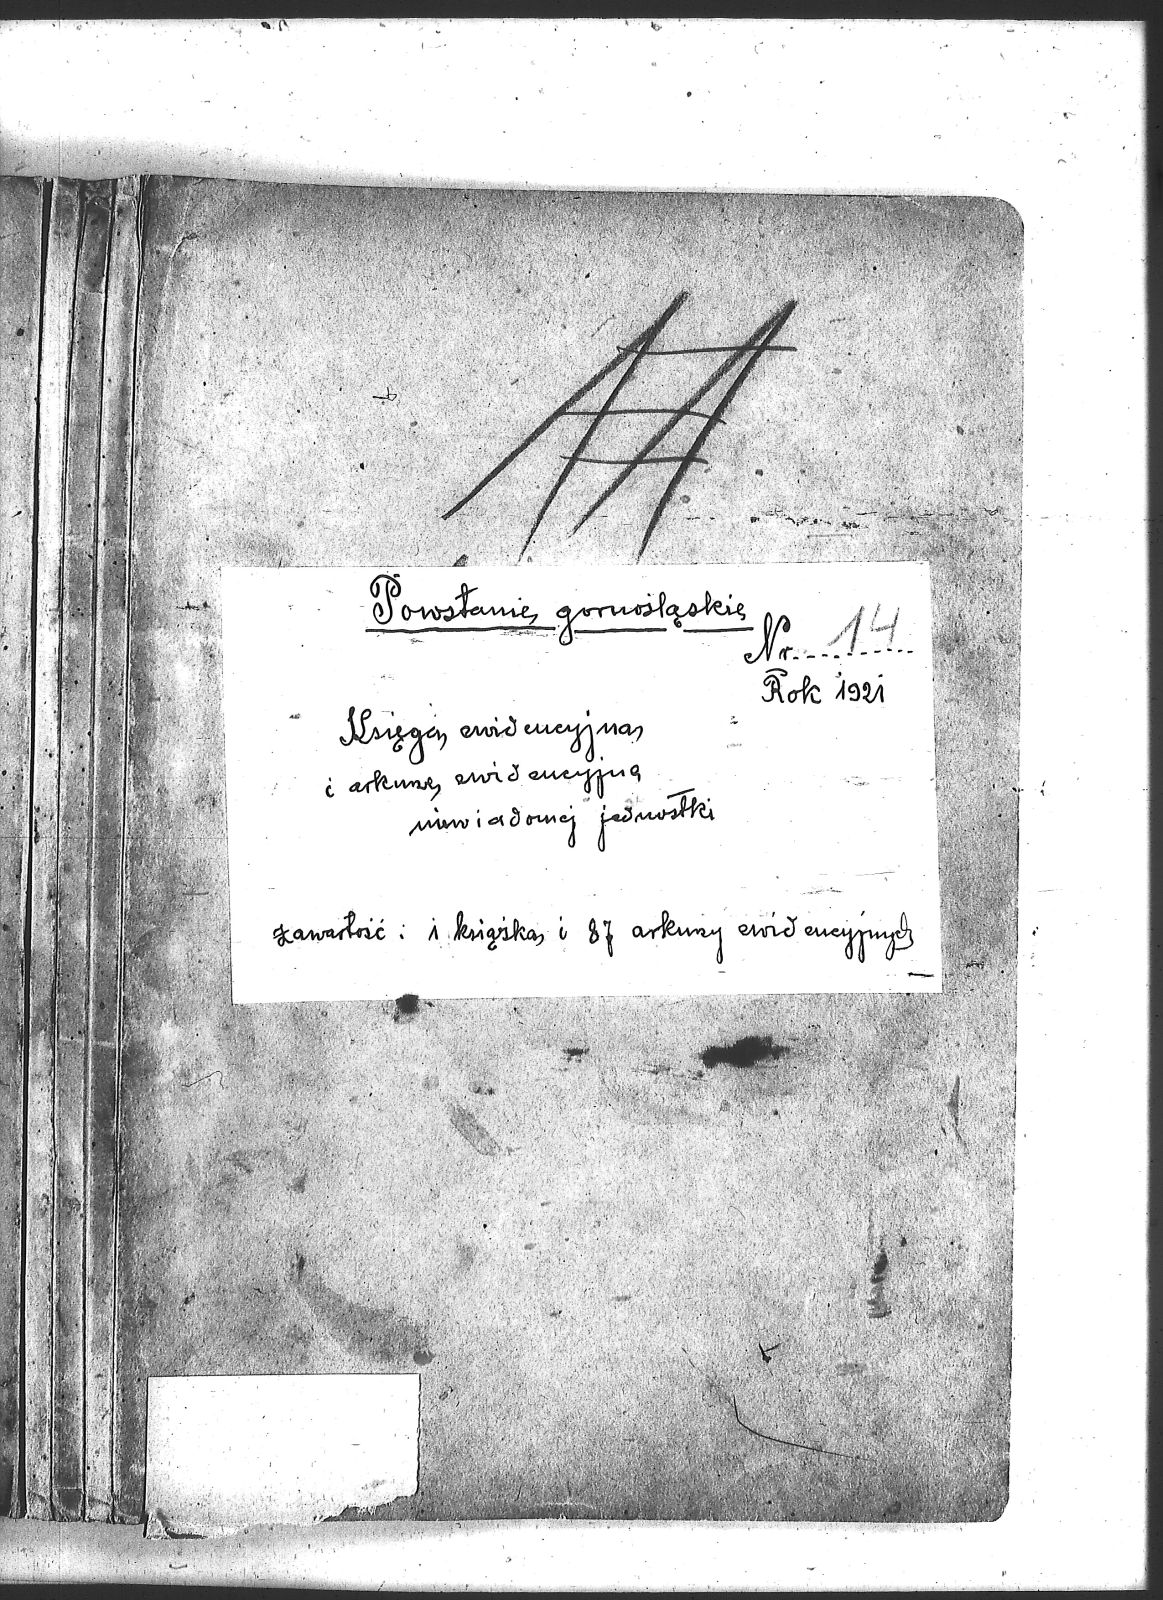 Powstanie gornośląskie
Nr. 14
Rok 1921
Księga ewidencyjna
i arkusze ewidencyjne
niewiadomej jednostki
zawartość: 1 książka i 87 arkuszy ewidencyjnych